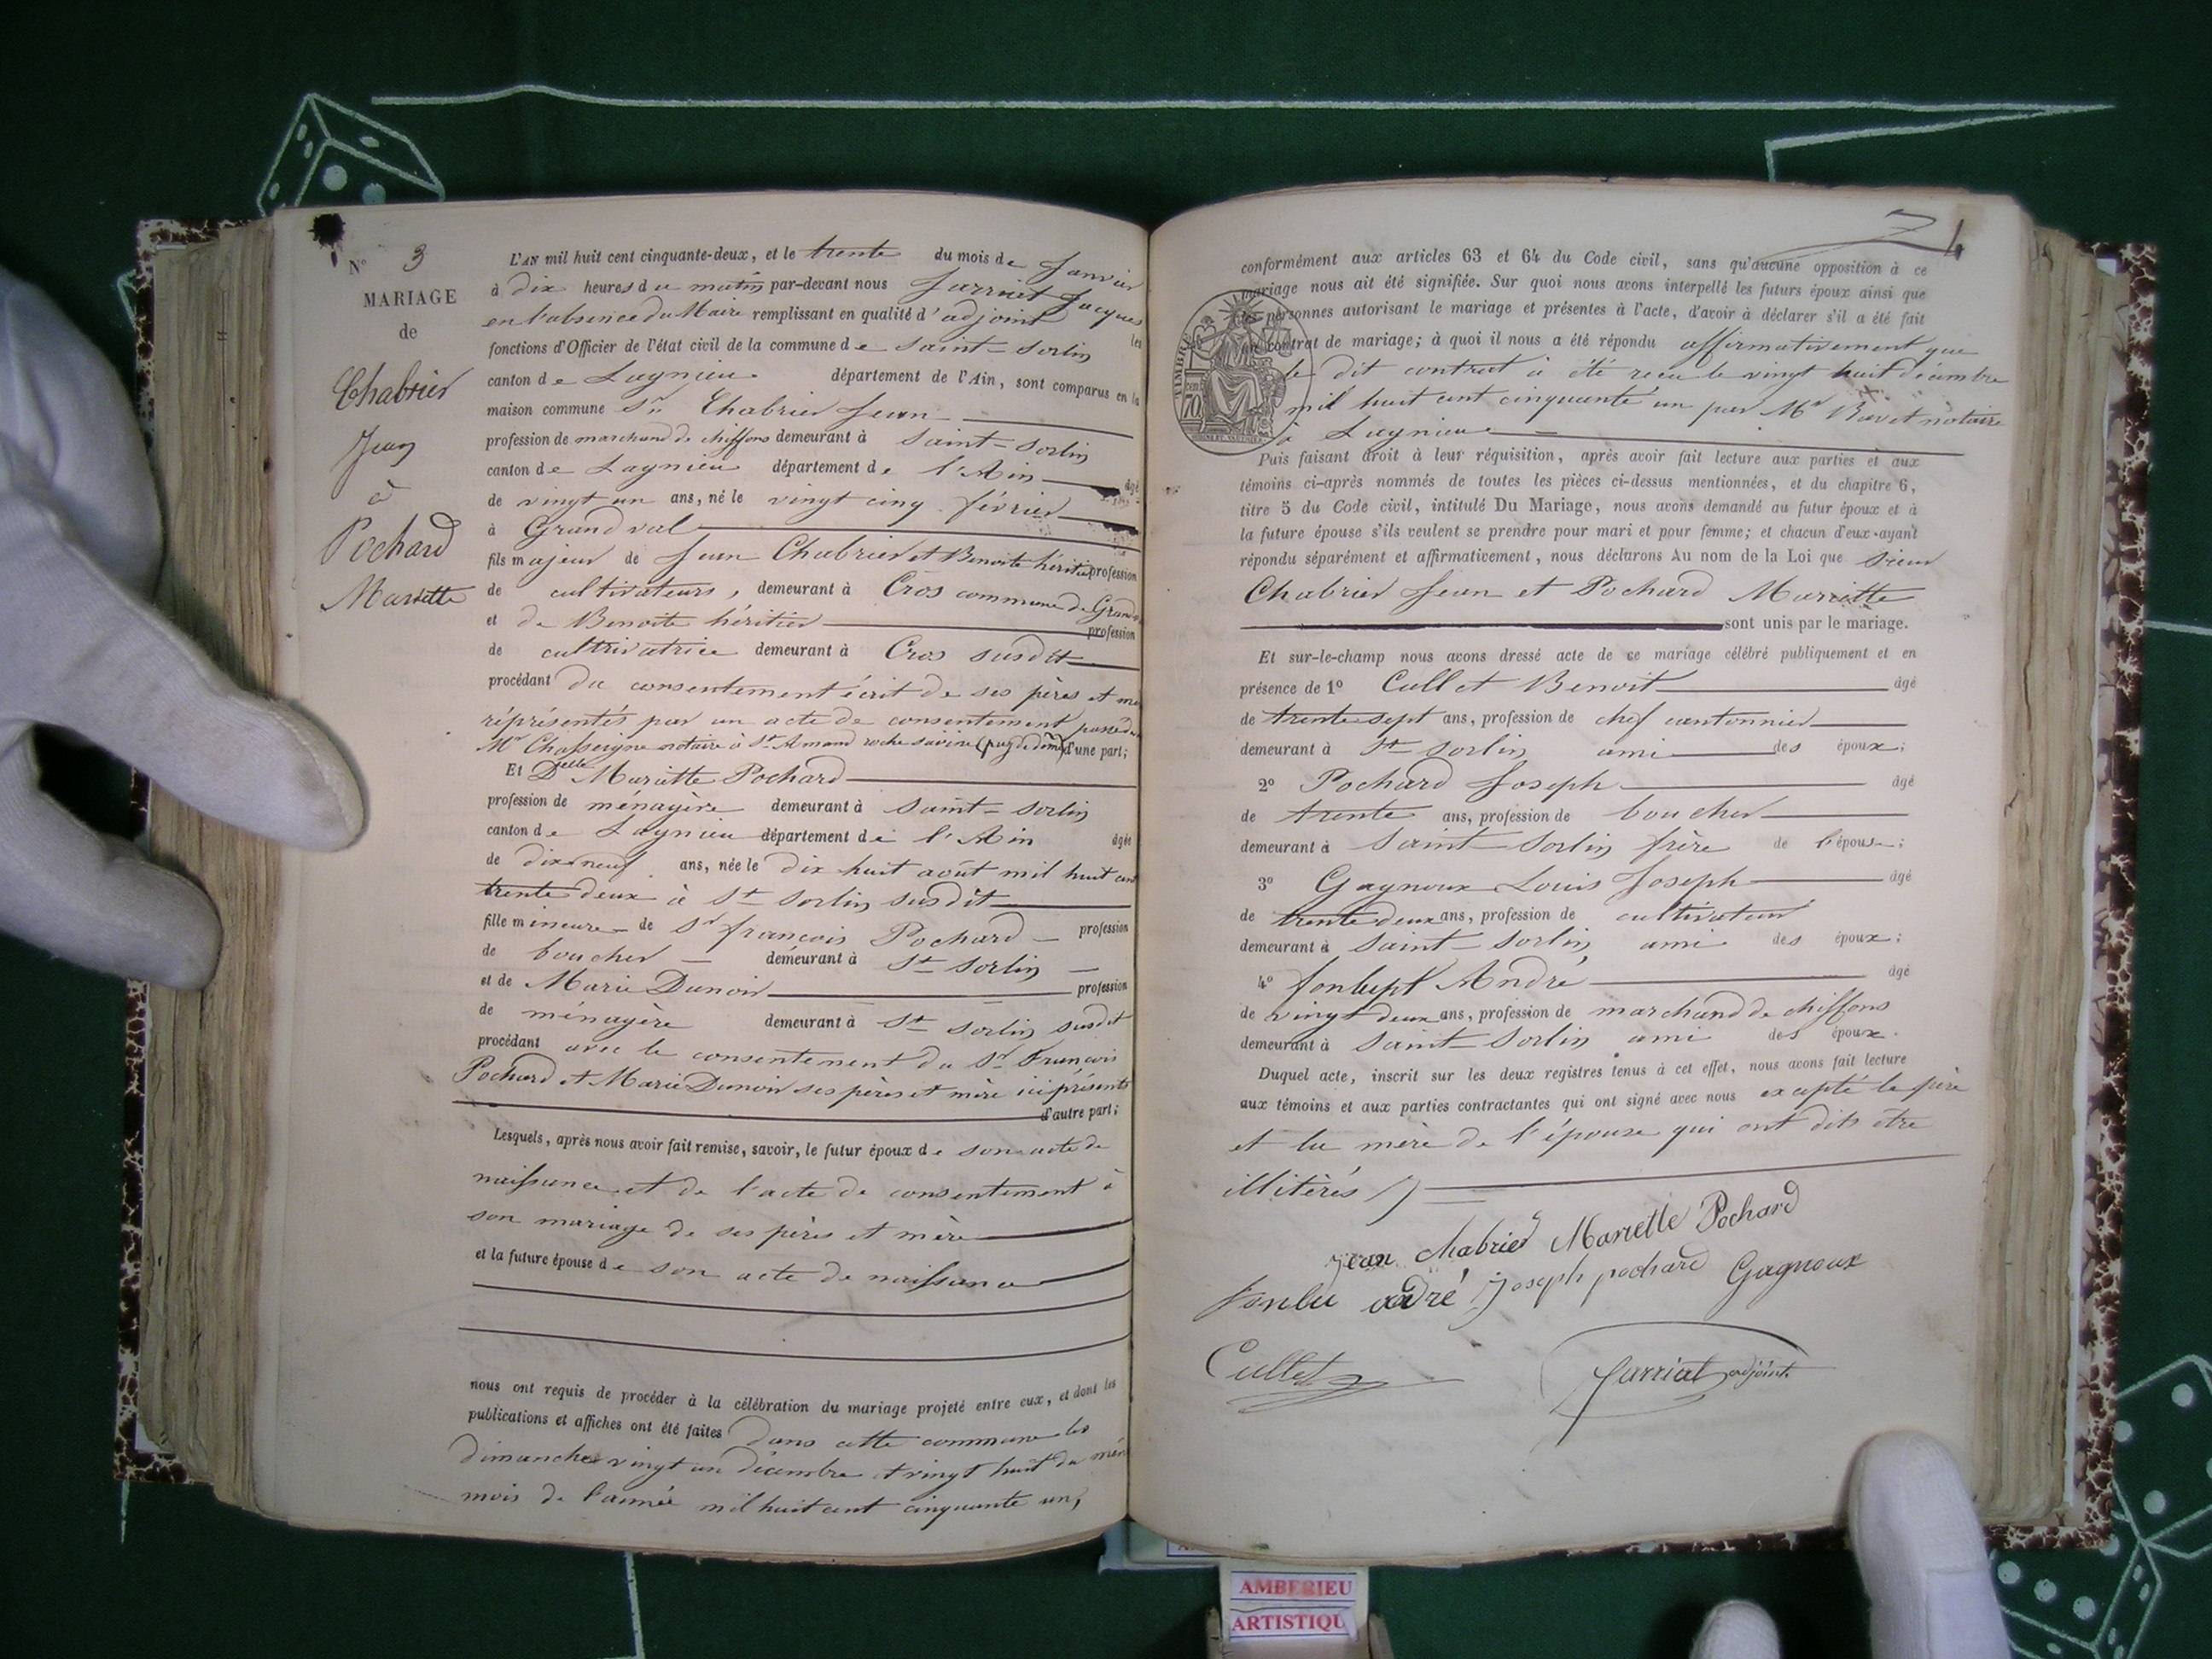 N° 3
MARIAGE
de
Chabrier
Jean
à
Pochard
Mariette
L'AN mil huit cent cinquante-deux, et le trente du mois de Janvier
à dix heures du matin par-devant nous Jarriat Jacques
en l'absence du Maire remplissant en qualité d'adjoint les
fonctions d'Officier de l'état civil de la commune de Saint-Sorlin
canton de Lagnieu département de l'Ain, sont comparus en la
maison commune Sr. Chabrier Jean
profession de marchand de chiffons demeurant à Saint-Sorlin
canton de Lagnieu département de l'Ain âgé
de vingt un ans, né le vingt cinq février
à Grandval
fils majeur de Jean Chabrier et Benoite héritier profession
de cultivateurs, demeurant à Cros commune de Grand
et de Benoite héritier profession
de cultrivatrice demeurant à Cros susdit
procédant du consentement écrit de ses pères et
réprésentés par un acte de consentement passé
Mr Chasseigne notaire à St Amand roche savine (puy de dôme) d'une part;
Et Delle Mariette Pochard
profession de ménagère demeurant à Saint-Sorlin
canton de Lagnieu département de l'Ain âgée
de dix neuf ans, née le dix huit août mil huit cent
trente deux à St Sorlin susdit
fille mineure de Sr françois Pochard profession
de boucher demeurant à St Sorlin
et de Marie Dunoir profession
de ménagère demeurant à St Sorlin susdit
procédant avec le consentement du Sr François
Pochard et Marie Dunoir ses pères et mère ici présents
d'autre part;
Lesquels, après nous avoir fait remise, savoir, le futur époux de son acte de
naissance et de l'acte de consentement à
son mariage de ses pères et mère
et la future épouse de son acte de naissance
nous ont requis de procéder à la célébration du mariage projeté entre eux, et dont les
publications et affiches ont été faites dans cette commune les
dimanches vingt un décembre et vingt huit du
mois de l'année mil huit cent cinquante un,
conformément aux articles 63 et 64 du Code civil, sans qu'aucune opposition à ce
mariage nous ait été signifiée. Sur quoi nous avons interpellé les futurs époux ainsi que
les personnes autorisant le mariage et présentes à l'acte, d'avoir à déclarer s'il a été fait
un contrat de mariage; à quoi il nous a été répondu affirmativement que
le dit contrat à été reçu le vingt huit décembre
mil huit cent cinquante un par Mr notaire
à Lagnieu
TIMBRE
70
Puis faisant droit à leur réquisition, après avoir fait lecture aux parties et aux
témoins ci-après nommés de toutes les pièces ci-dessus mentionnées, et du chapitre 6,
titre 5 du Code civil, intitulé Du Mariage, nous avons demandé au futur époux et à
la future épouse s'ils veulent se prendre pour mari et pour femme; et chacun d'eux ayant
répondu séparément et affirmativement, nous déclarons Au nom de la Loi que Sieur
Chabrier Jean et Pochard Mariette
sont unis par le mariage.
Et sur-le-champ nous avons dressé acte de ce mariage célébré publiquement et en
présence de 1° Cullet Benoit âgé
de trente sept ans, profession de chef cantonnier
demeurant à St Sorlin ami des époux;
2° Pochard Joseph âgé
de trente ans, profession de boucher
demeurant à Saint Sorlin frère de l'épouse;
3° Gagnoux Louis Joseph âgé
de trente deux ans, profession de cultivateur
demeurant à Saint-Sorlin ami des époux;
4° fonlupt André âgé
de vingt deux ans, profession de marchand de chiffons
demeurant à Saint-Sorlin ami des époux.
Duquel acte, inscrit sur les deux registres tenus à cet effet, nous avons fait lecture
aux témoins et aux parties contractantes qui ont signé avec nous excepté le père
et la mère de l'épouse qui ont dits être
illitérés
jean chabrier Mariette Pochard
fonlu adré joseph pochard Gagnoux
Cullet Jarriat adjoint
AMBERIEU
ARTISTIQU